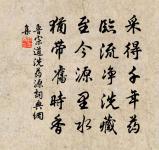 采得千年药
临流净洗藏
至今源里水
犹带旧时香
鲁宗道洗药源词典网
集